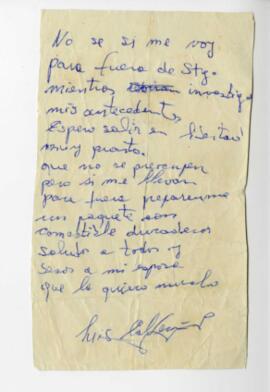 No se si me voy
para fuera de Stg.
mientras investiga
mis antecedentes
Espero salir en
muy pronto.
que no se preocupen
pero si me llevan
para fuera preparenme
un paquete con
comestible duraderos
saludos a todos y
besos a mi esposa
que la quiero mucho
Luis